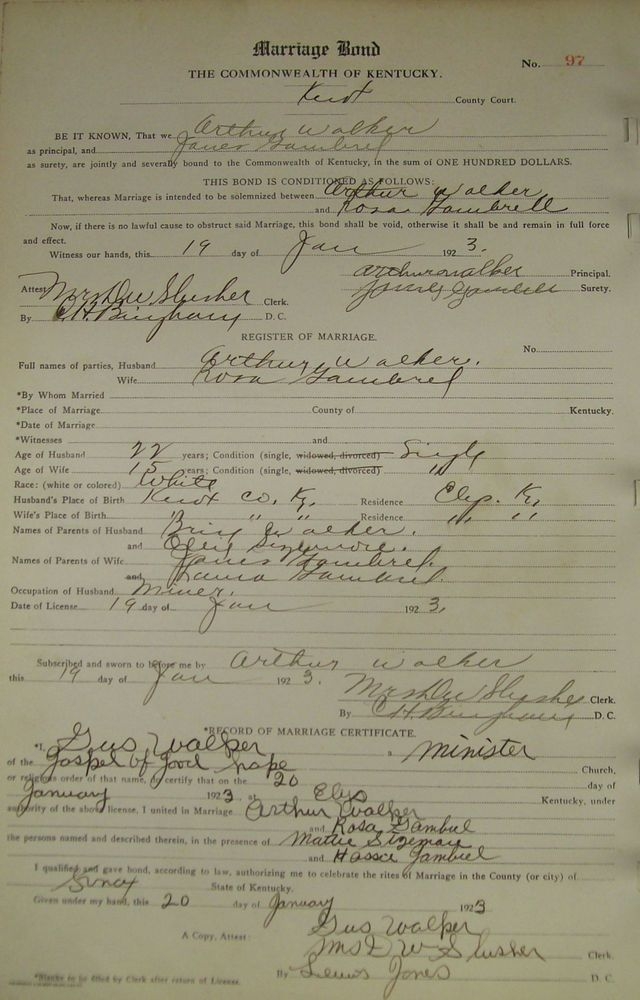 Marriage Bond
No. 97
THE COMMONWEALTH OF KENTUCKY.
Knox County Court.
BE IT KNOWN, That we Arthur Walker
as principal, and James Gambrel
as surety, are jointly and severally bound to the Commonwealth of Kentucky, in the sum of ONE HUNDRED DOLLARS.
THIS BOND IS CONDITIONED AS FOLLOWS:
That, whereas Marriage is intended to be solemnized between Arthur Walker
and Rosa Gambrell
Now, if there is no lawful cause to obstruct said Marriage, this bond shall be void, otherwise it shall be and remain in full force
and effect.
Witness our hands, this 19 day of Jan 1923.
Arthur Walker Principal.
Attest Mrs. D W Slusher Clerk. Surety.
By C H Bingham D. C.
REGISTER OF MARRIAGE.
No.
Full names of parties, Husband Arthur Walker.
Wife Rosa Gambrel
*By Whom Married
*Place of Marriage County of Kentucky.
*Date of Marriage
*Witnesses and
Age of Husband 22 years; Condition (single, widowed, divorced) Single
Age of Wife 15 years; Condition (single, widowed, divorced) "
Race: (white or colored) White
Husband's Place of Birth Knox Co. Ky. Residence Ky.
Wife's Place of Birth " " " Residence " "
Names of Parents of Husband Walker.
and Sizemore.
Names of Parents of Wife James Gambrel.
and Gambrel.
Occupation of Husband Miner.
Date of License 19 day of Jan 1923.
Subscribed and sworn to before me by Arthur Walker
this 19 day of Jan 1923.
Mrs D W Slusher Clerk.
By C H Bingham D. C.
*RECORD OF MARRIAGE CERTIFICATE.
*I, Gus Walker a minister
of the Gospel of Good hope Church,
or religious order of that name, do certify that on the 20 day of
January 1923 at Kentucky, under
authority of the above license, I united in Marriage Arthur Walker
and Rosa Gambrel
the persons named and described therein, in the presence of Mattie
and Gambrel
I qualified and gave bond, according to law, authorizing me to celebrate the rites of Marriage in the County (or city) of
State of Kentucky.
Given under my hand, this 20 day of January 1923
Gus Walker
A Copy, Attest: Mrs D W Slusher Clerk.
By Lewis Jones D. C.
*Blanks to be filled by Clerk after return of License.